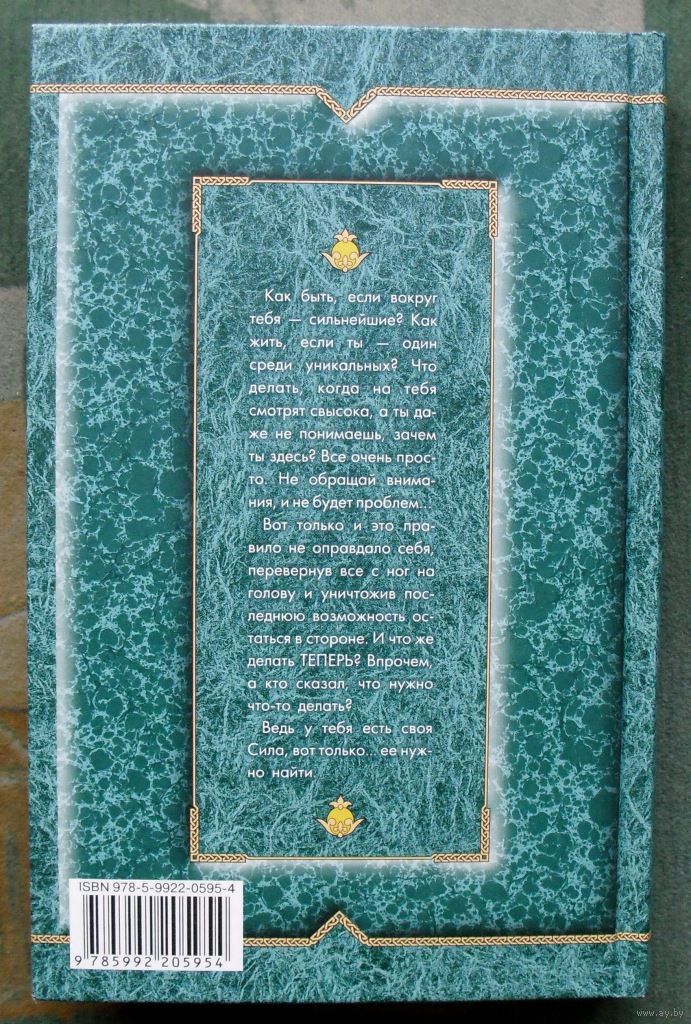 Как быть, если вокруг
тебя — сильнейшие? Как
жить, если ты — один
среди уникальных? Что
делать, когда на тебя
смотрят свысока, а ты да-
же не понимаешь, зачем
ты здесь? Все очень прос-
то. Не обращай внима-
ния, и не будет проблем...
Вот только и это пра-
вило не оправдало себя,
перевернув все с ног на
голову и уничтожив пос-
леднюю возможность ос-
таться в стороне. И что же
делать ТЕПЕРЬ? Впрочем,
а кто сказал, что нужно
что-то делать?
Ведь у тебя есть своя
Сила, вот только... ее нуж-
но найти.
ISBN 978-5-9922-0595-4
9 785992 205954
www.ay.by